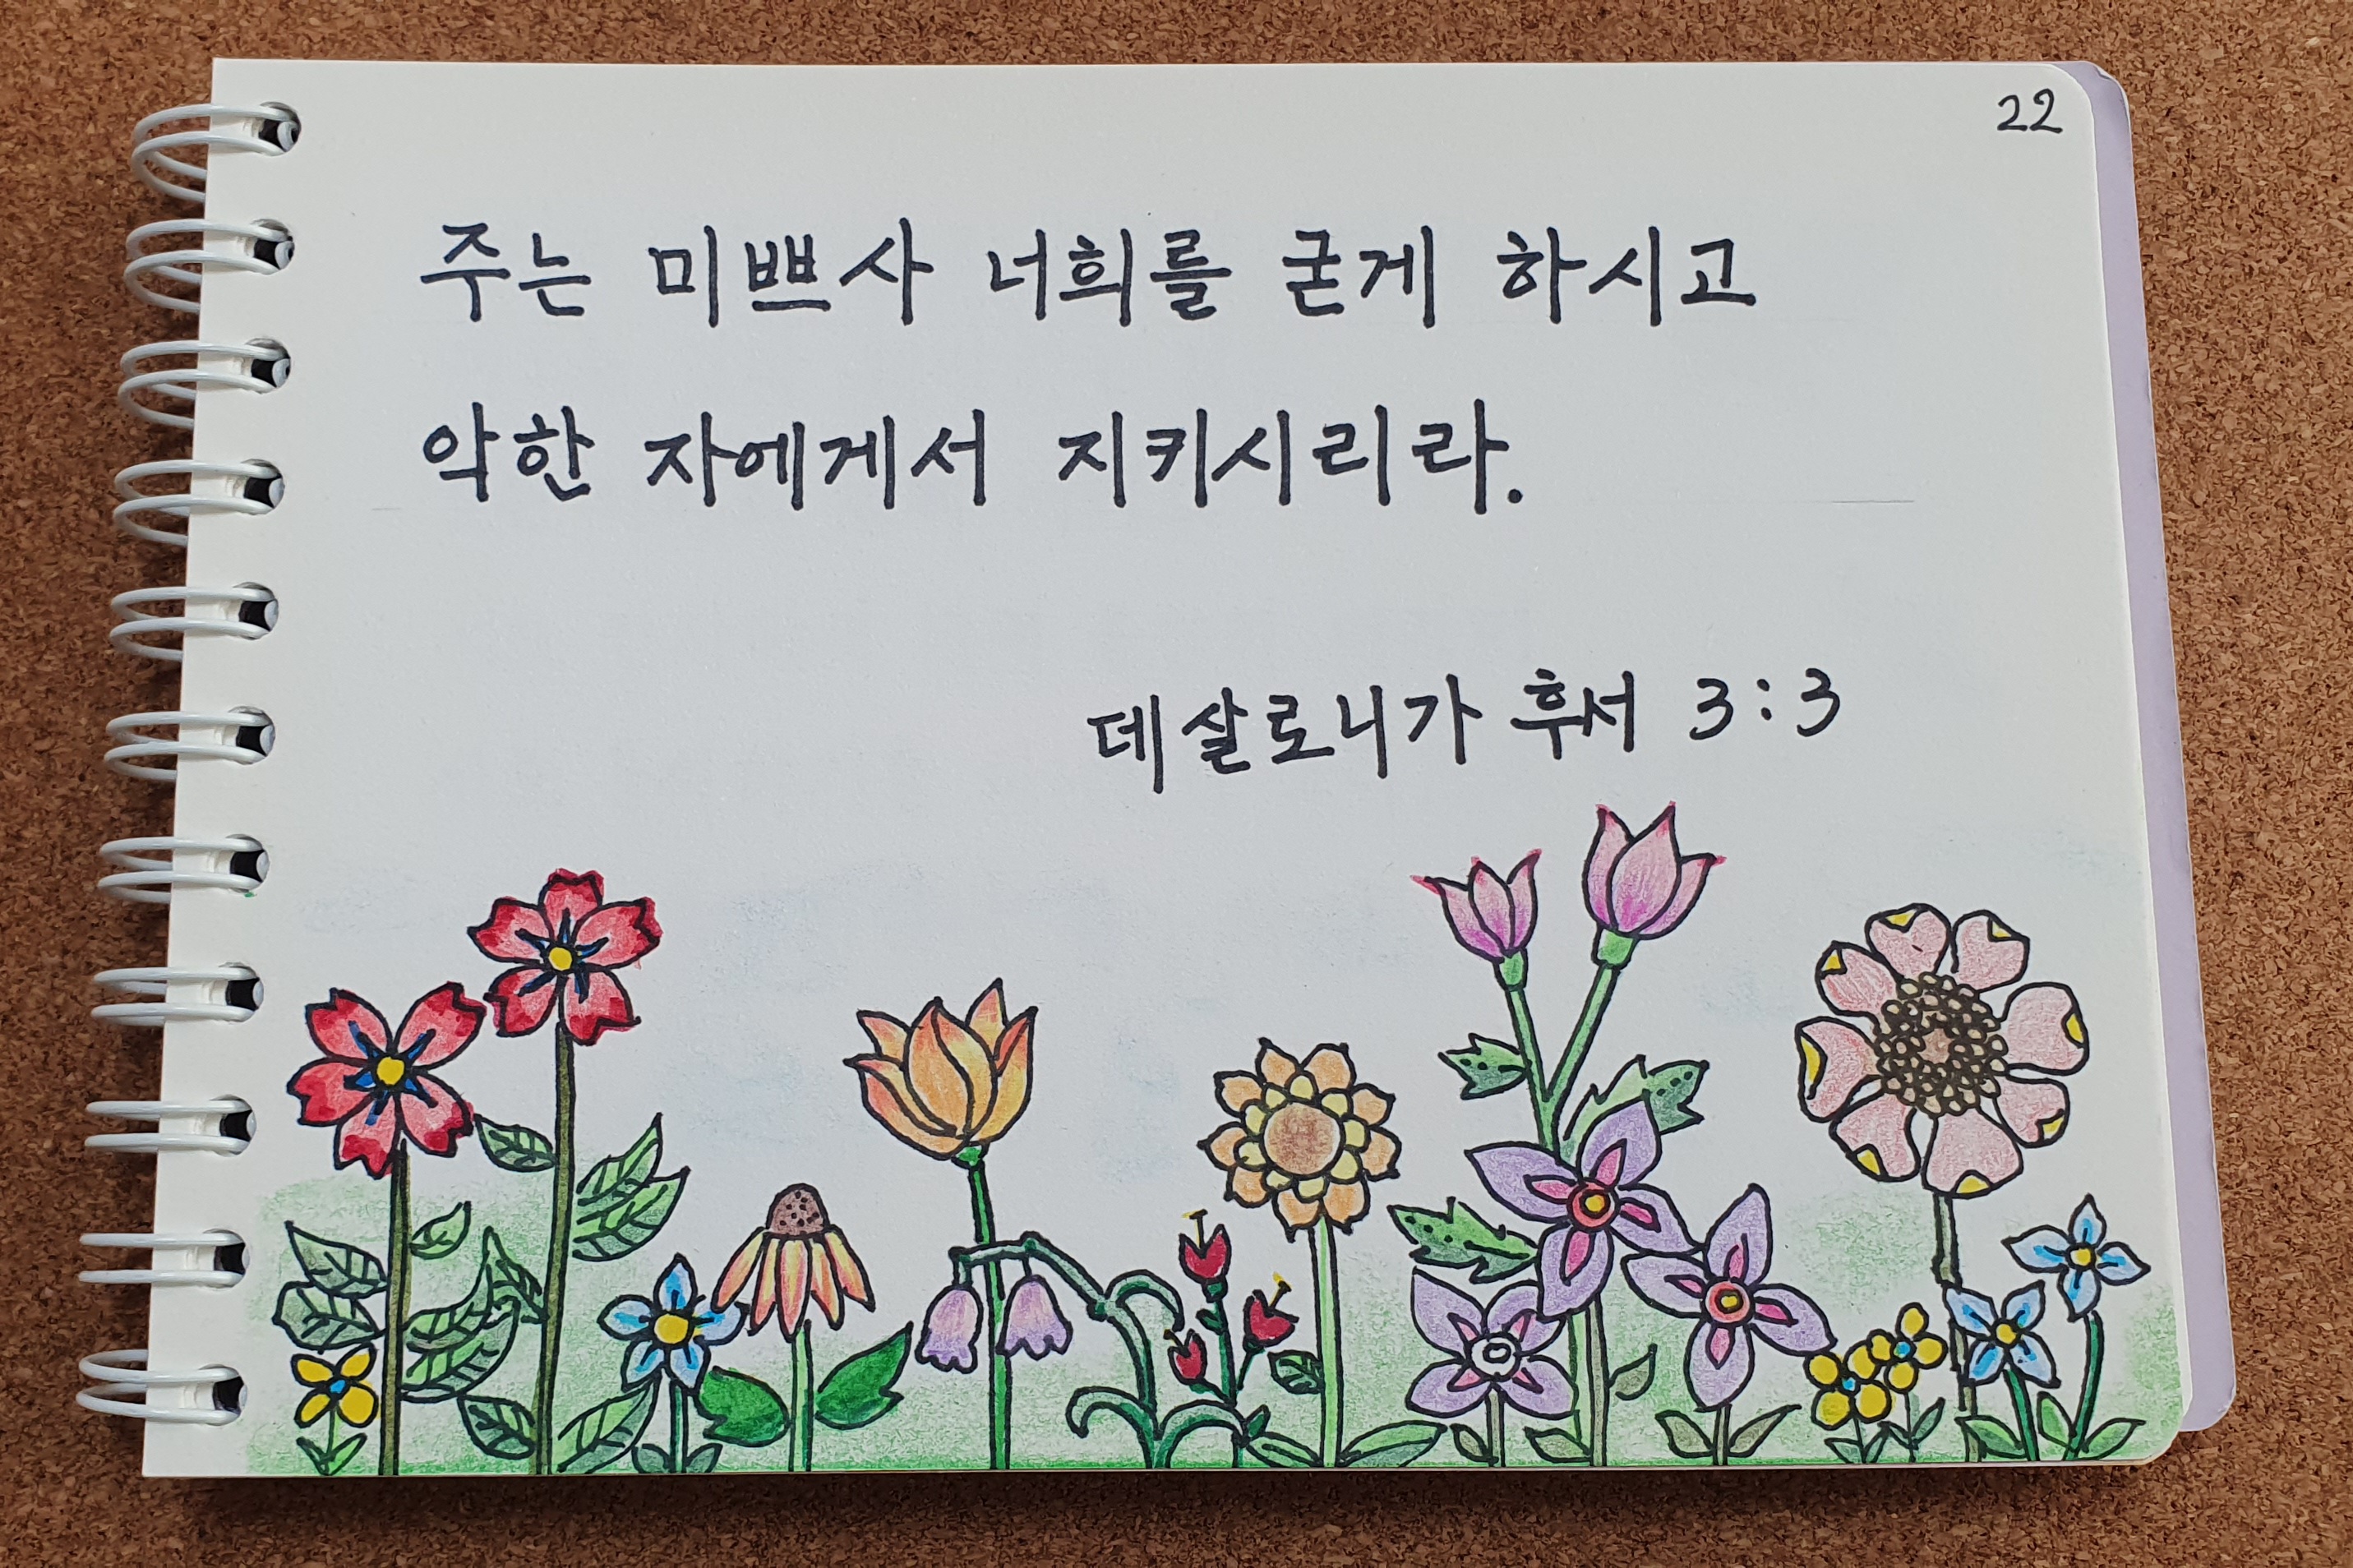 22
주는 미쁘사 너희를 굳게 하시고
악한 자에게서 지키시리라.
데살로니가 후서 3:3